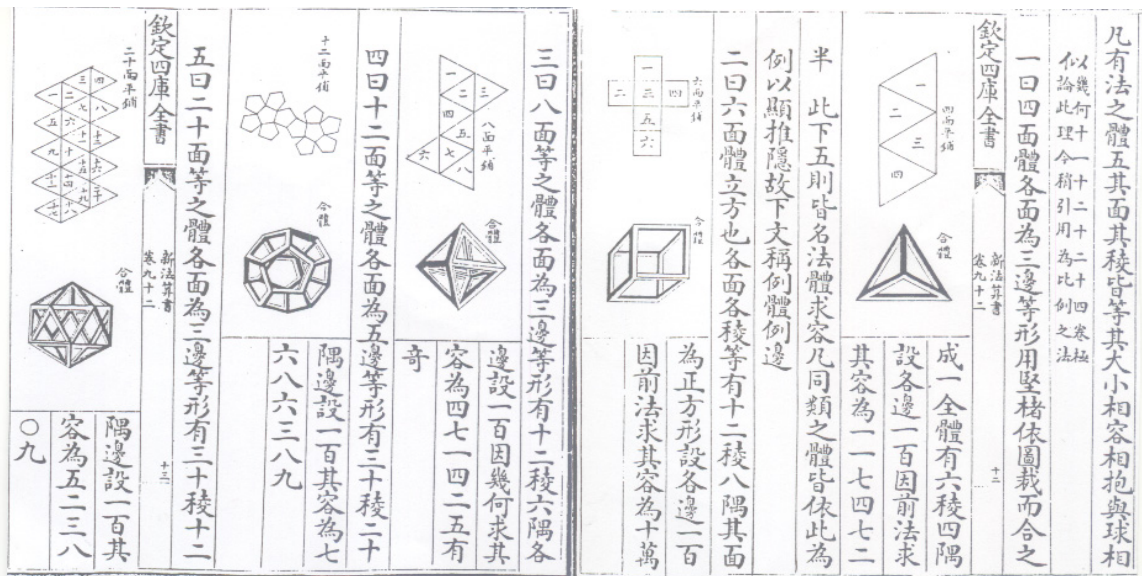 凡有法之體五其面其稜皆等其大小相容相抱與球相
似幾何十一十二十二十四卷極
論此理今稍引用為比例之法
一曰四面體各面為三邊等形用堅楮依圖裁而合之
欽定四庫全書
新法算書
卷九十二
十二
四面平鋪
一
二
三
四
合體
成一全體有六稜四隅
設各邊一百因前法求
其容為一一七四七二
半 此下五則皆名法體求容凡同類之體皆依此為
例以顯推隱故下文稱例體例邊
二曰六面體立方也各面各稜等有十二稜八隅其面
六面平鋪
一
二 三 四
五
六
合體
為正方形設各邊一百
因前法求其容為十萬
三曰八面等之體各面為三邊等形有十二稜六隅各
八面平鋪
一
二
三
四
五
六
七
八
合體
邊設一百因幾何求其
容為四七一四二五有
奇
四曰十二面等之體各面為五邊等形有三十稜二十
十二面平鋪
合體
隅邊設一百其容為七
六八六三八九
五曰二十面等之體各面為三邊等形有三十稜十二
欽定四庫全書
新法算書
卷九十二
十三
二十面平鋪
三 四
一 二 七 八
五 六 十一 十二
九 十 十五 十六
十三 十四 十九 二十
十七 十八
合體
隅邊設一百其
容為五二三八
〇九